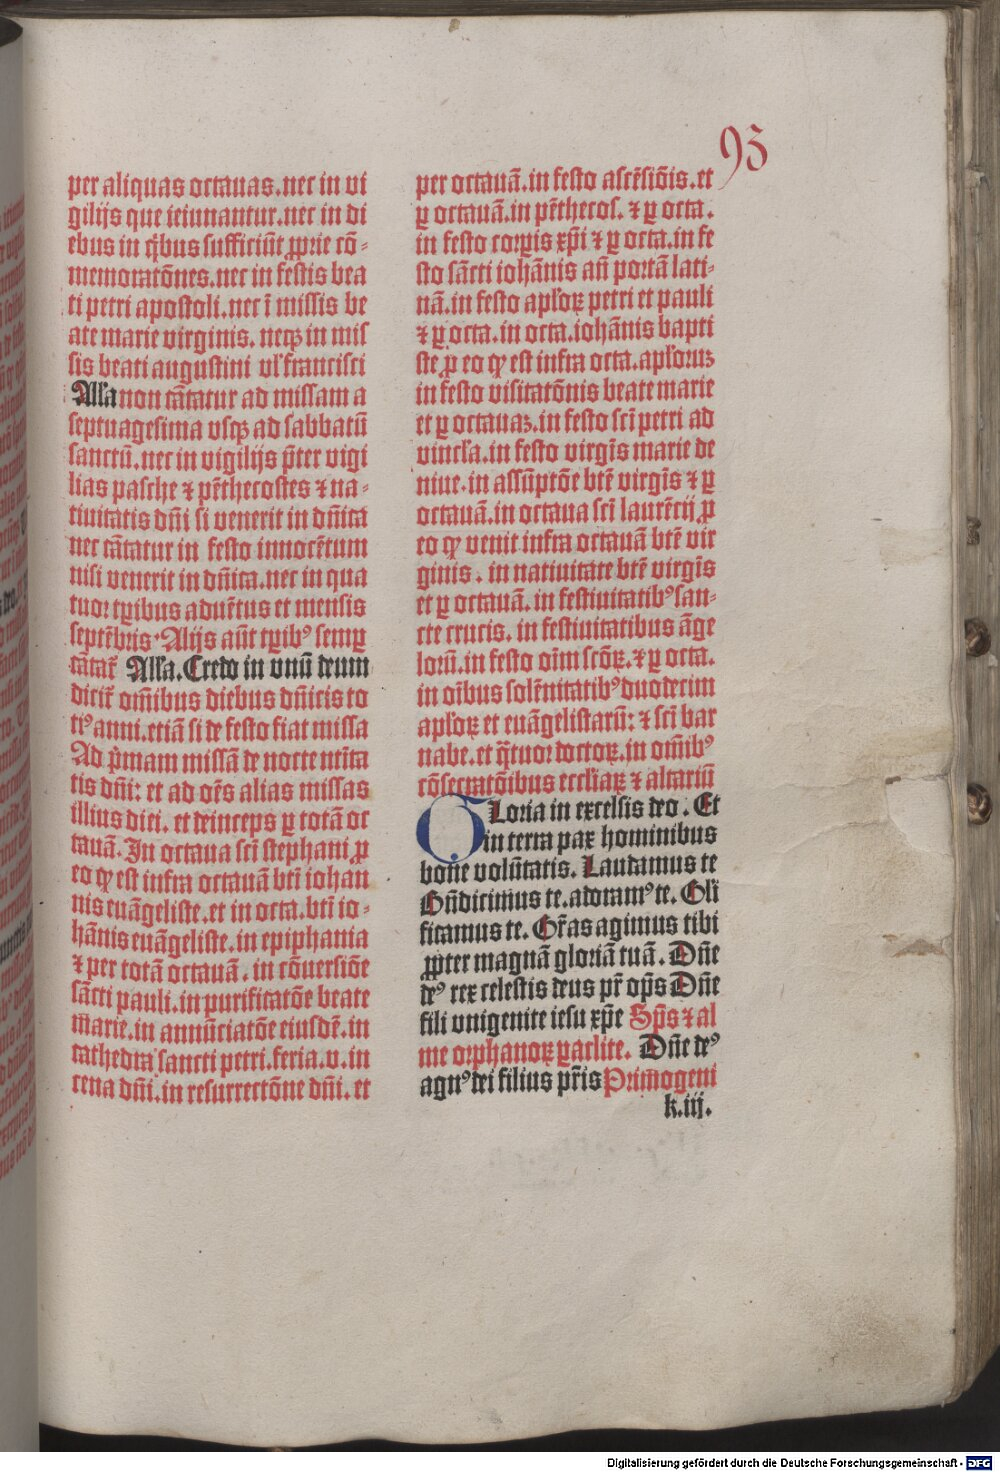 93
per aliquas octauas. nec in vi
gilijs que ieiunantur. nec in di
ebus in q̄bus sufficiūt ꝓprie cō-
memoratōnes. nec in festis bea
ti petri apostoli. nec ī missis be
ate marie virginis. neqꝫ in mis
sis beati augustini vľ francisci
Alľa non cātatur ad missam a
septuagesima vsqꝫ ad sabbatū
sanctū. nec in vigilijs p̄ter vigi
lias pasche ⁊ pēthecostes ⁊ na-
tiuitatis dn̄i si venerit in dn̄ica
nec cātatur in festo innocētum
nisi venerit in dn̄ica. nec in qua
tuor tꝑibus aduētus et mensis
septēbris. Alijs aūt tꝑibꝰ semꝑ
cātat̄ Alľa. Credo in vnū deum
dicit̄ om̄ibus diebus dn̄icis to
tiꝰ anni. etiā si de festo fiat missa
Ad p̄mam missā de nocte ntīta
tis dn̄i: et ad oēs alias missas
illius diei. et deinceps ꝑ totā oc
tauā. In octaua scī stephani ꝓ
eo qꝙ est infra octauā btī iohan
nis euāgeliste. et in octa. btī io-
hānis euāgeliste. in epiphania
⁊ per totā octauā. in cōuersiōe
sācti pauli. in purificatōe beate
marie. in annūciatōe eiusdē. in
cathedra sancti petri. feria. v. in
cena dn̄i. in resurrectōne dn̄i. et
per octauā. in festo ascēsiōis. et
ꝑ octauā. in pēthecos. ⁊ ꝑ octa.
in festo corꝑis xp̄i ⁊ ꝑ octa. in fe
sto sācti iohānis an̄ portā lati-
nā. in festo apľoꝝ petri et pauli
⁊ ꝑ octa. in octa. iohānis bapti
ste ꝓ eo qꝙ est infra octa. apľoruꝫ
in festo visitatōnis beate marie
et ꝑ octauaꝫ. in festo scī petri ad
vincľa. in festo virgīs marie de
niue. in assūptōe btē virgīs ⁊ ꝑ
octauā. in octaua scī laurētij ꝓ
eo qꝙ venit infra octauā btē vir
ginis. in natiuitate btē virgīs
et ꝑ octauā. in festiuitatibꝰ san-
cte crucis. in festiuitatibus āge
lorū. in festo oīm scōꝝ. ⁊ ꝑ octa.
in oībus solēnitatibꝰ duodecim
apľoꝝ et euāgelistarū: ⁊ scī bar
nabe. et q̄tuor doctoꝝ. in om̄ibꝰ
cōsecratōibus eccľiaꝝ ⁊ altariū
Gloria in excelsis deo. Et
in terra pax hominibus
bone volūtatis. Laudamus te
Bn̄dicimus te. adoramꝰ te. Glī
ficamus te. Gr̄as agimus tibi
ꝓpter magnā gloriā tuā. Dn̄e
deꝰ rex celestis deus pr̄ op̄s Dn̄e
fili vnigenite iesu xp̄e Sp̄s ⁊ al
me orphanoꝝ ꝑaclite. Dn̄e deꝰ
agnꝰ dei filius pr̄is Primogeni
k. iij.
Digitalisierung gefördert durch die Deutsche Forschungsgemeinschaft - DFG